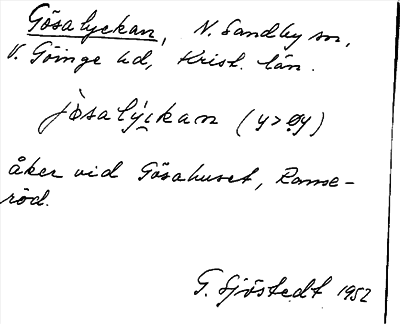 Gösalyckan, N. Sandby sn,
V. Göinge hd, Krist. län.
jøsalýckan (y>øy)
åker vid Gösahuset, Ramse-
röd.
G. Sjöstedt 1952